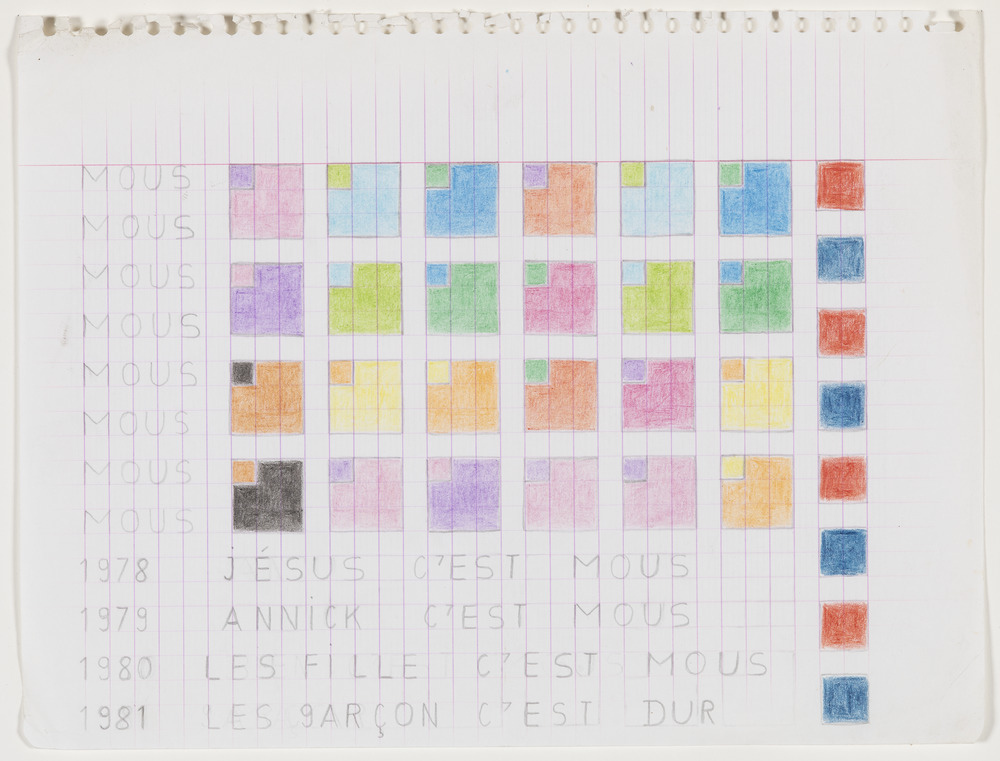 MOUS
MOUS
MOUS
MOUS
MOUS
MOUS
MOUS
MOUS
1978 JÉSUS C'EST MOUS
1979 ANNiCK C'EST MOUS
1980 LES FiLLE C'EST MOUS
1981 LES gARÇON C'EST DUR